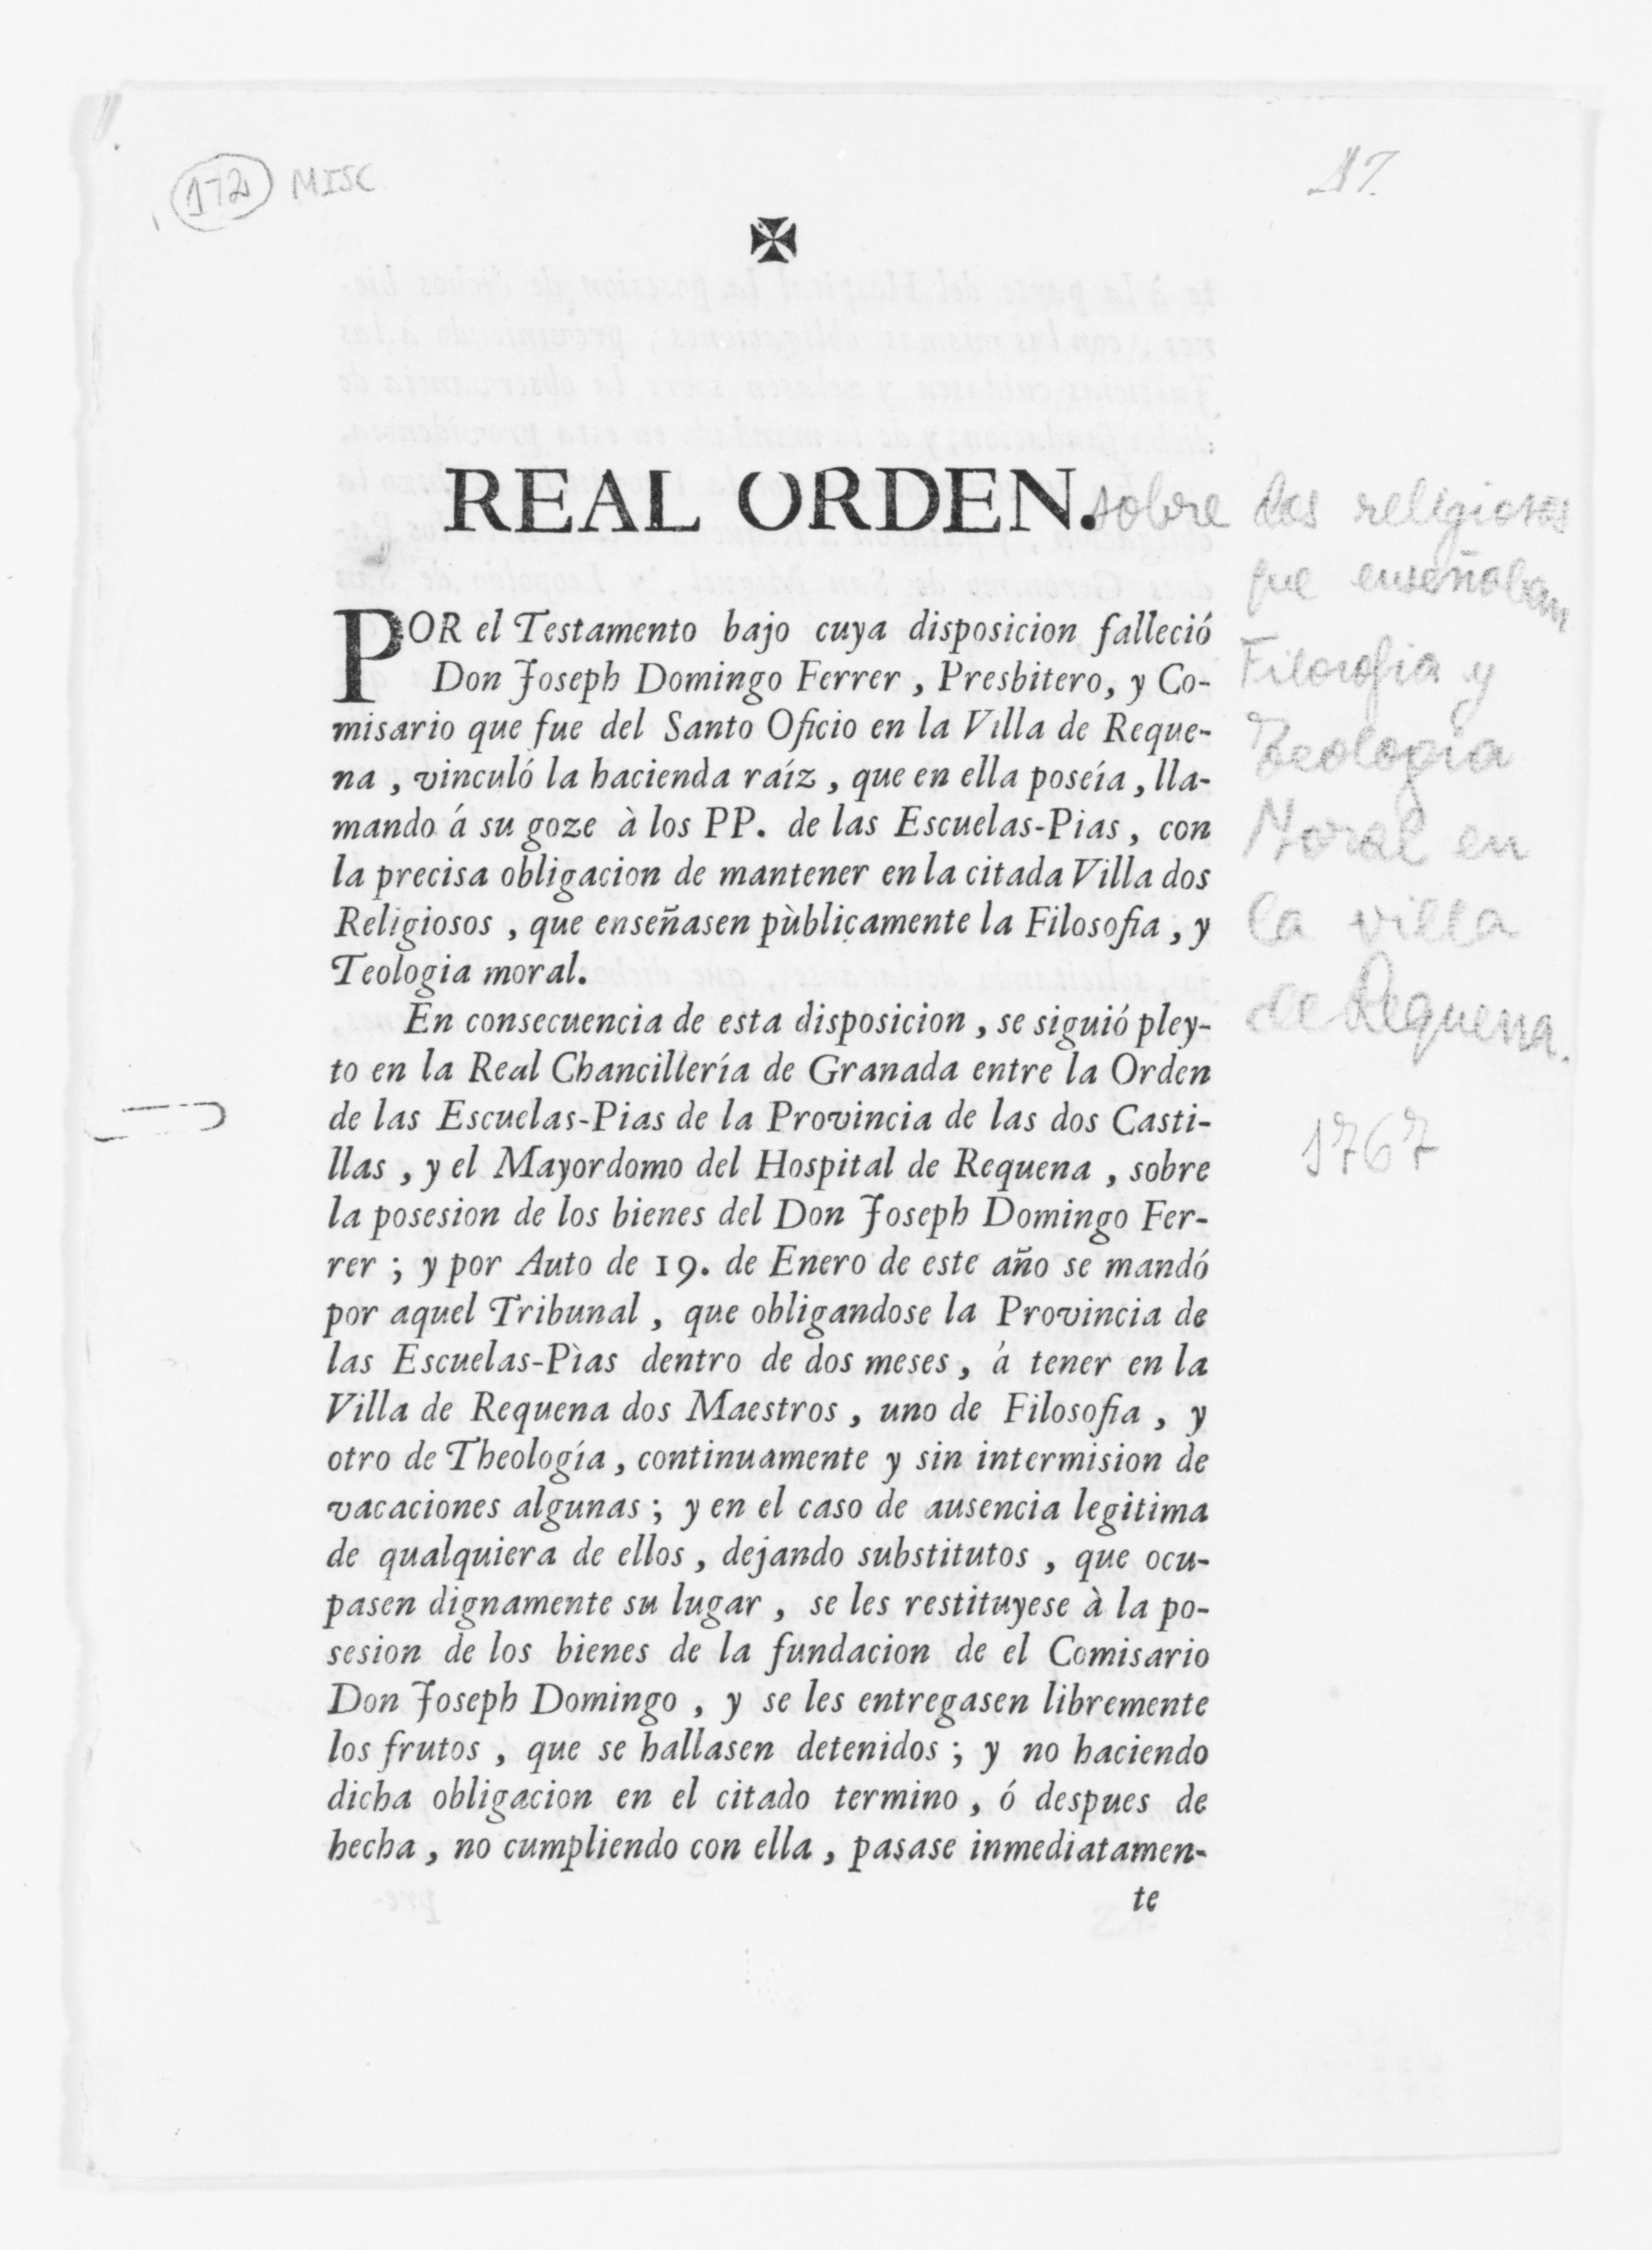 172 MISC
17.
REAL ORDEN. sobre dos religiosos
que enseñaban
Filosofia y
Teologia
Moral en
la villa
de Requena.
1767
POR el Testamento bajo cuya disposicion falleció
Don Joseph Domingo Ferrer , Presbitero, y Co-
misario que fue del Santo Oficio en la Villa de Reque-
na , vinculó la hacienda raíz , que en ella poseía , lla-
mando á su goze à los PP. de las Escuelas-Pias, con
la precisa obligacion de mantener en la citada Villa dos
Religiosos , que enseñasen pùblicamente la Filosofia , y
Teologia moral.
En consecuencia de esta disposicion , se siguió pley-
to en la Real Chancillería de Granada entre la Orden
de las Escuelas-Pias de la Provincia de las dos Casti-
llas , y el Mayordomo del Hospital de Requena , sobre
la posesion de los bienes del Don Joseph Domingo Fer-
rer ; y por Auto de 19. de Enero de este año se mandó
por aquel Tribunal , que obligandose la Provincia de
las Escuelas-Pìas dentro de dos meses , á tener en la
Villa de Requena dos Maestros , uno de Filosofia , y
otro de Theología , continuamente y sin intermision de
vacaciones algunas ; y en el caso de ausencia legitima
de qualquiera de ellos , dejando substitutos , que ocu-
pasen dignamente su lugar , se les restituyese à la po-
sesion de los bienes de la fundacion de el Comisario
Don Joseph Domingo , y se les entregasen libremente
los frutos , que se hallasen detenidos ; y no haciendo
dicha obligacion en el citado termino , ó despues de
hecha , no cumpliendo con ella , pasase inmediatamen-
te